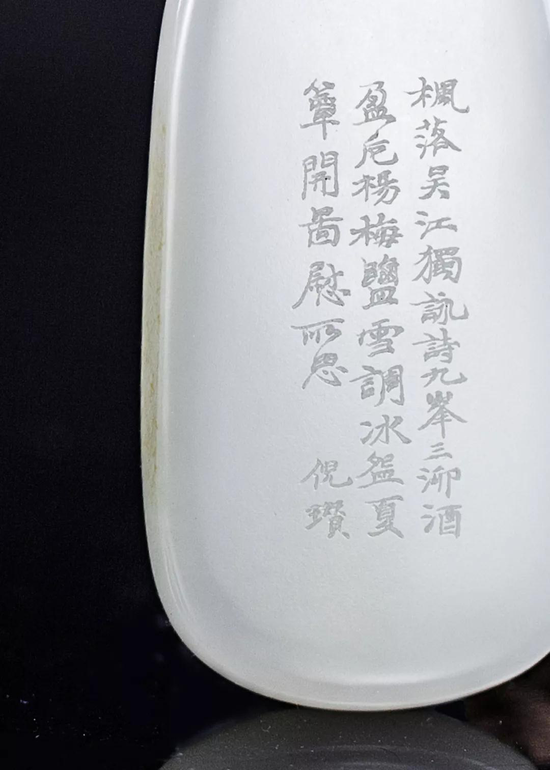 楓落吳江獨詠詩九峯三泖酒
盈卮楊梅鹽雪調冰盌夏
簟開啚慰所思 倪瓚